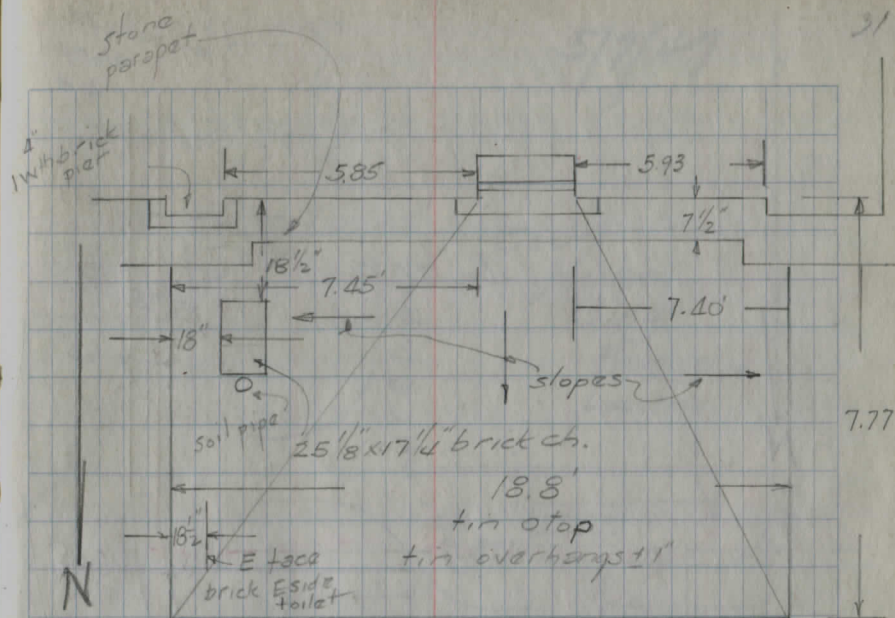 31
stone
parapet
4"
1 Wth brick
pier
5.85
5.93
7 1/2"
18 1/2"
7.45'
7.40'
18"
slopes
O
soil pipe
25 1/8" x 17 1/4" brick ch.
7.77
18.8'
tin otop
tin overhangs ± 1"
18 1/2"
E face
brick E side
toilet
N